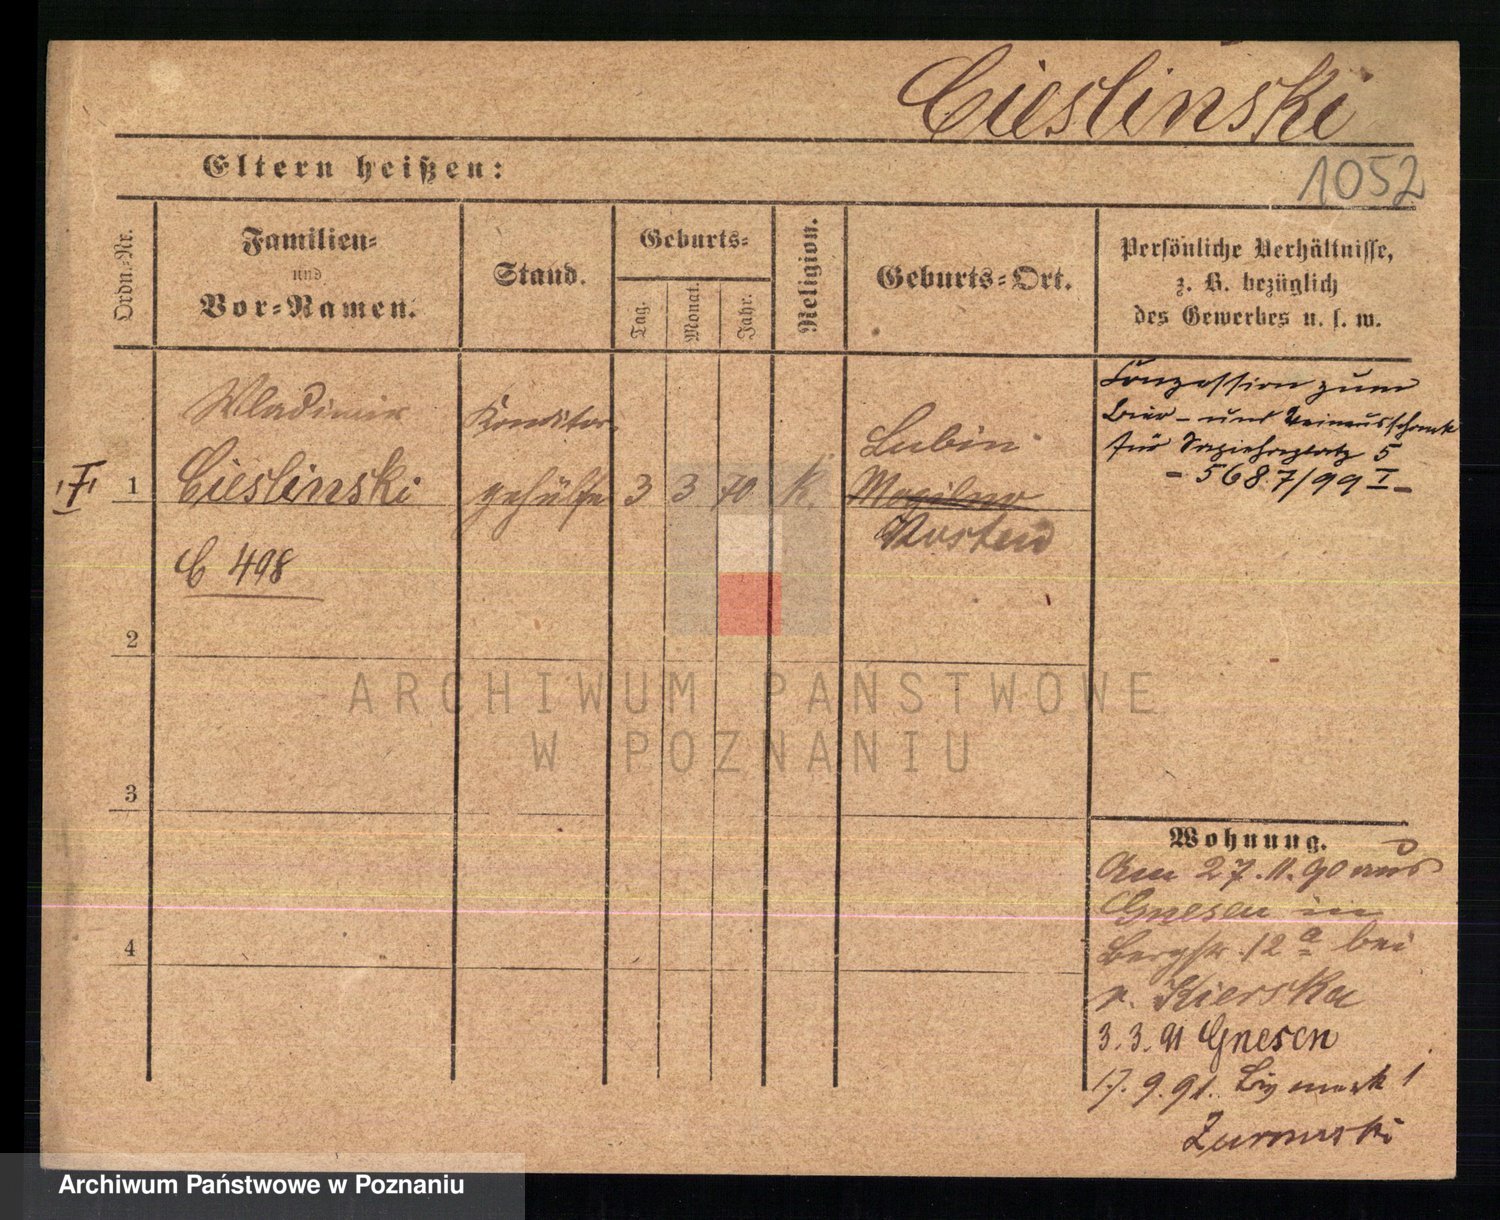 Cieslinski
Eltern heißen:
1052
Ordn.-Nr.
Familien-
und
Vor-Namen.
Stand.
Geburts-
Tag.
Monat.
Jahr.
Religion.
Geburts-Ort.
Persönliche Verhältnisse,
z. B. bezüglich
des Gewerbes u. s. w.
Wladimir
Cieslinski
C 498
Konditor
gehülfe
3 3 70 k.
Lubin
Mogilno
Kosten
Conzession zum
Bier- und Weinausschank
für Sapiehaplatz 5
- 5687/99 I -
I
1
2
3
4
Wohnung.
Am 27.11.90 aus
Gnesen in
Bergstr. 12 a bei
v. Kierska
3.3.91 Gnesen
17.9.91. Bismark 1
Zurowski
ARCHIWUM PAŃSTWOWE
W POZNANIU
Archiwum Państwowe w Poznaniu